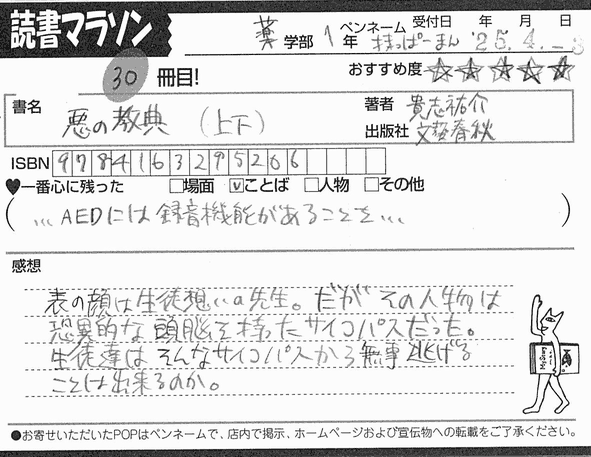 読書マラソン
薬 学部 1 年 ペンネーム 受付日 年 月 日
'25. 4.
30 冊目!
おすすめ度 ☆☆☆☆☆
書名 悪の教典 (上下)
著者 貴志祐介
出版社 文藝春秋
ISBN 9784163295206
♥一番心に残った □場面 ☑ことば □人物 □その他
(... AEDには録音機能があることを...)
感想
表の顔は生徒想いの先生。だがその人物は
恐異的な頭脳を持ったサイコパスだった。
生徒達はそんなサイコパスから無事逃げる
ことは出来るのか。
●お寄せいただいたPOPはペンネームで、店内で掲示、ホームページおよび宣伝物への転載をご了承ください。